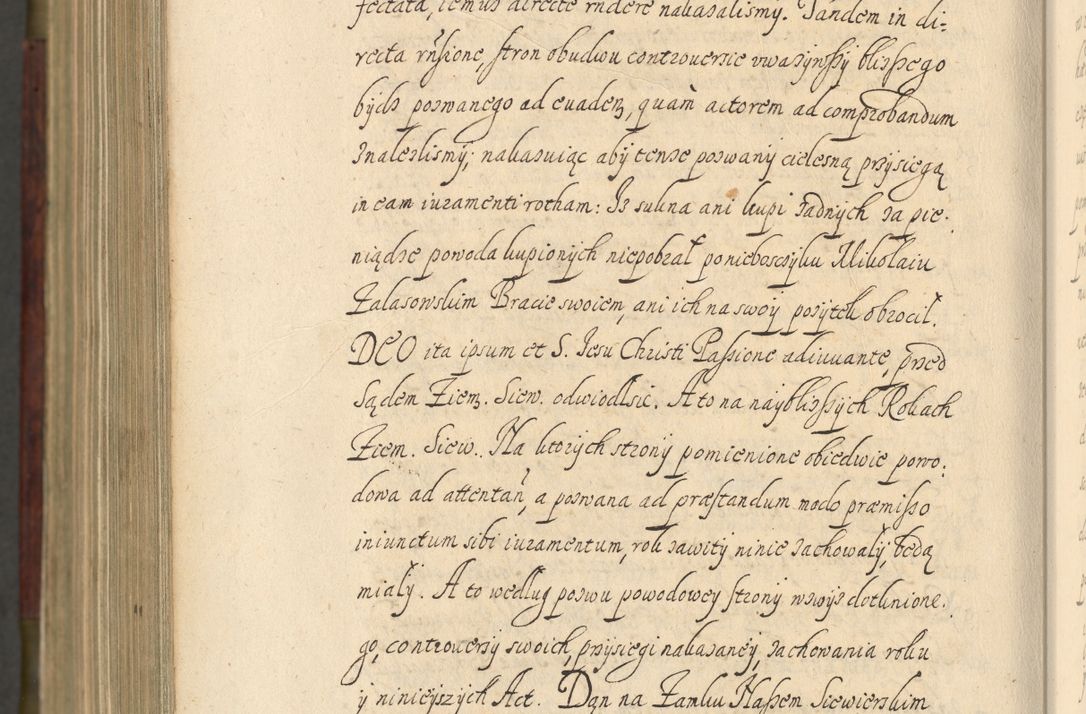 fectata, iemuż directe rńdere nakazalismy. Tandem in di-
recta rńsione, stron obudwu controuersie vwazywszy bliższego
bydz pozwanego ad euadeз, quam actorem ad comprobandum
znalezlismy; nakazuiąc aby tenże pozwany cielesną przysięgą
in eam iuramenti rotham: Iz sukna ani kupi żadnych za pie-
niądze powoda kupionych niepobrał ponieboszczyku Mikołaiu
Zalasowskim Bracie swoiem, ani ich na swoy pozytek obrocił.
DEO ita ipsum et S. Iesu Christi Passione adiuuante, przed
Sądem Ziem. Siew. odwiodł sie. A to na naybliższych Rokach
Ziem. Siew. Na ktorych strony pomienione obiedwie powo-
dowa ad attentań, a pozwana ad præstandum modo præmisso
iniunctum sibi iuramentum, rok zawity ninie zachowały, będą
miały. A to według pozwu powodowey strony wzwyż dotknione-
go, controuersy swoich, przysięgi nakazaney, zachowania roku
y ninieyszych Act. Dąn na Zamku Naszem Siewierskim